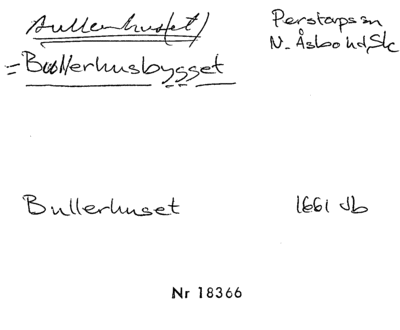 Bullerhuset) Perstorps sn
= Bullerhusbygget N. Åsbo hd, Sk
Bullerhuset 1661 Jb
Nr 18366